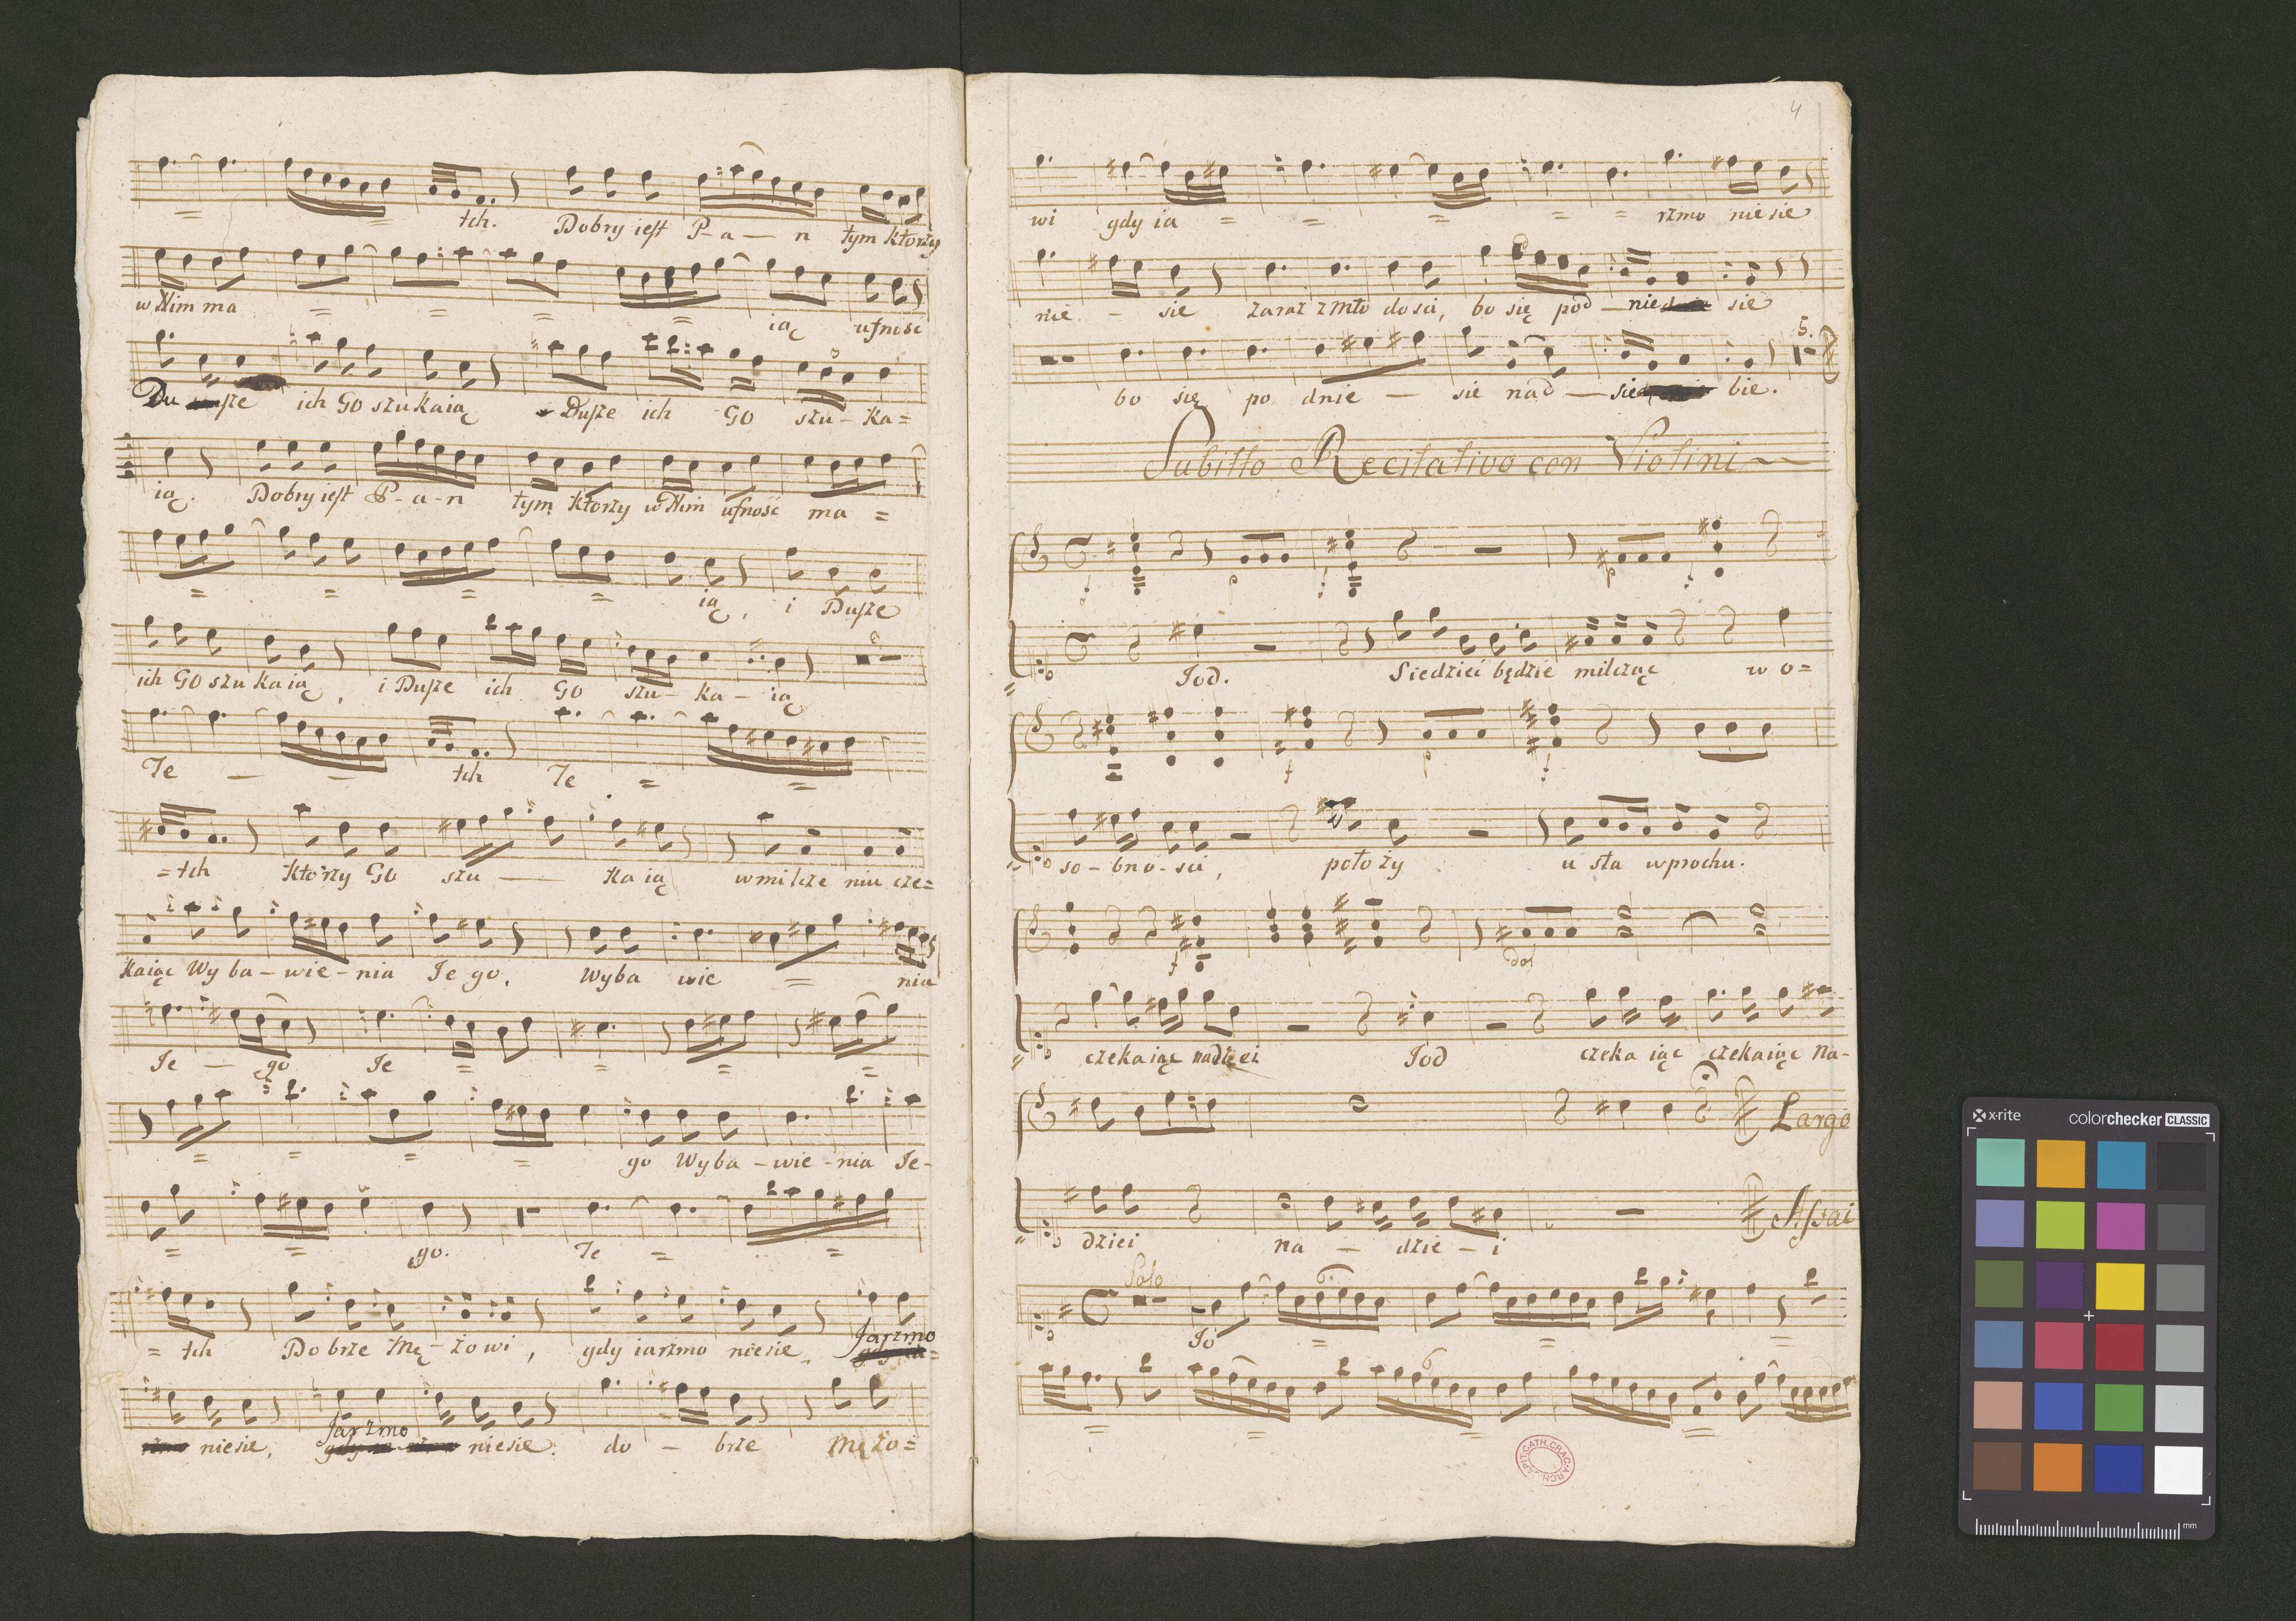 = = tch. Dobry iest P-a-n tym którzy
w Nim ma = = = = ią ufność
Du sze ich Go szukaią Dusze ich Go szu-ka=
ią. Dobry iest P-a-n tym którzy w Nim ufność ma =
= = = = ią, i Dusze
ich Go szukaią, i Dusze ich Go szu-ka-ią
Te — — tch Te = =
=tch którzy Go szu — kaią w milcze niu cze=
kaiąc Wyba-wie-nia Je go, Wyba wie = nia
Je — go Je = = = =
= = = = go Wyba-wie-nia Je-
= = go. Te = =
= tch Dobrze Mę-żowi, gdy iarzmo niesie, Jarzmo
niesie, Jarzmo niesie. do — brze Mężo=
4
wi gdy ia = = = = = rzmo niesie
nie - sie zaraz z Mło dości, bo się pod — nie sie
5.
bo się po dnie — sie nad — sie bie.
Subitto Recitativo con Violini
f p f p f
Jod. Siedzieć będzie milcząc w o=
f p f
so-bno-ści, położy usta w prochu.
f dol
czekaiąc nadziei Jod czeka iąc czekaiąc na-
Largo
dziei na — dzie — i Assai
Solo 6.
Jo = = =
6
= = = =
CATH. CRAC.